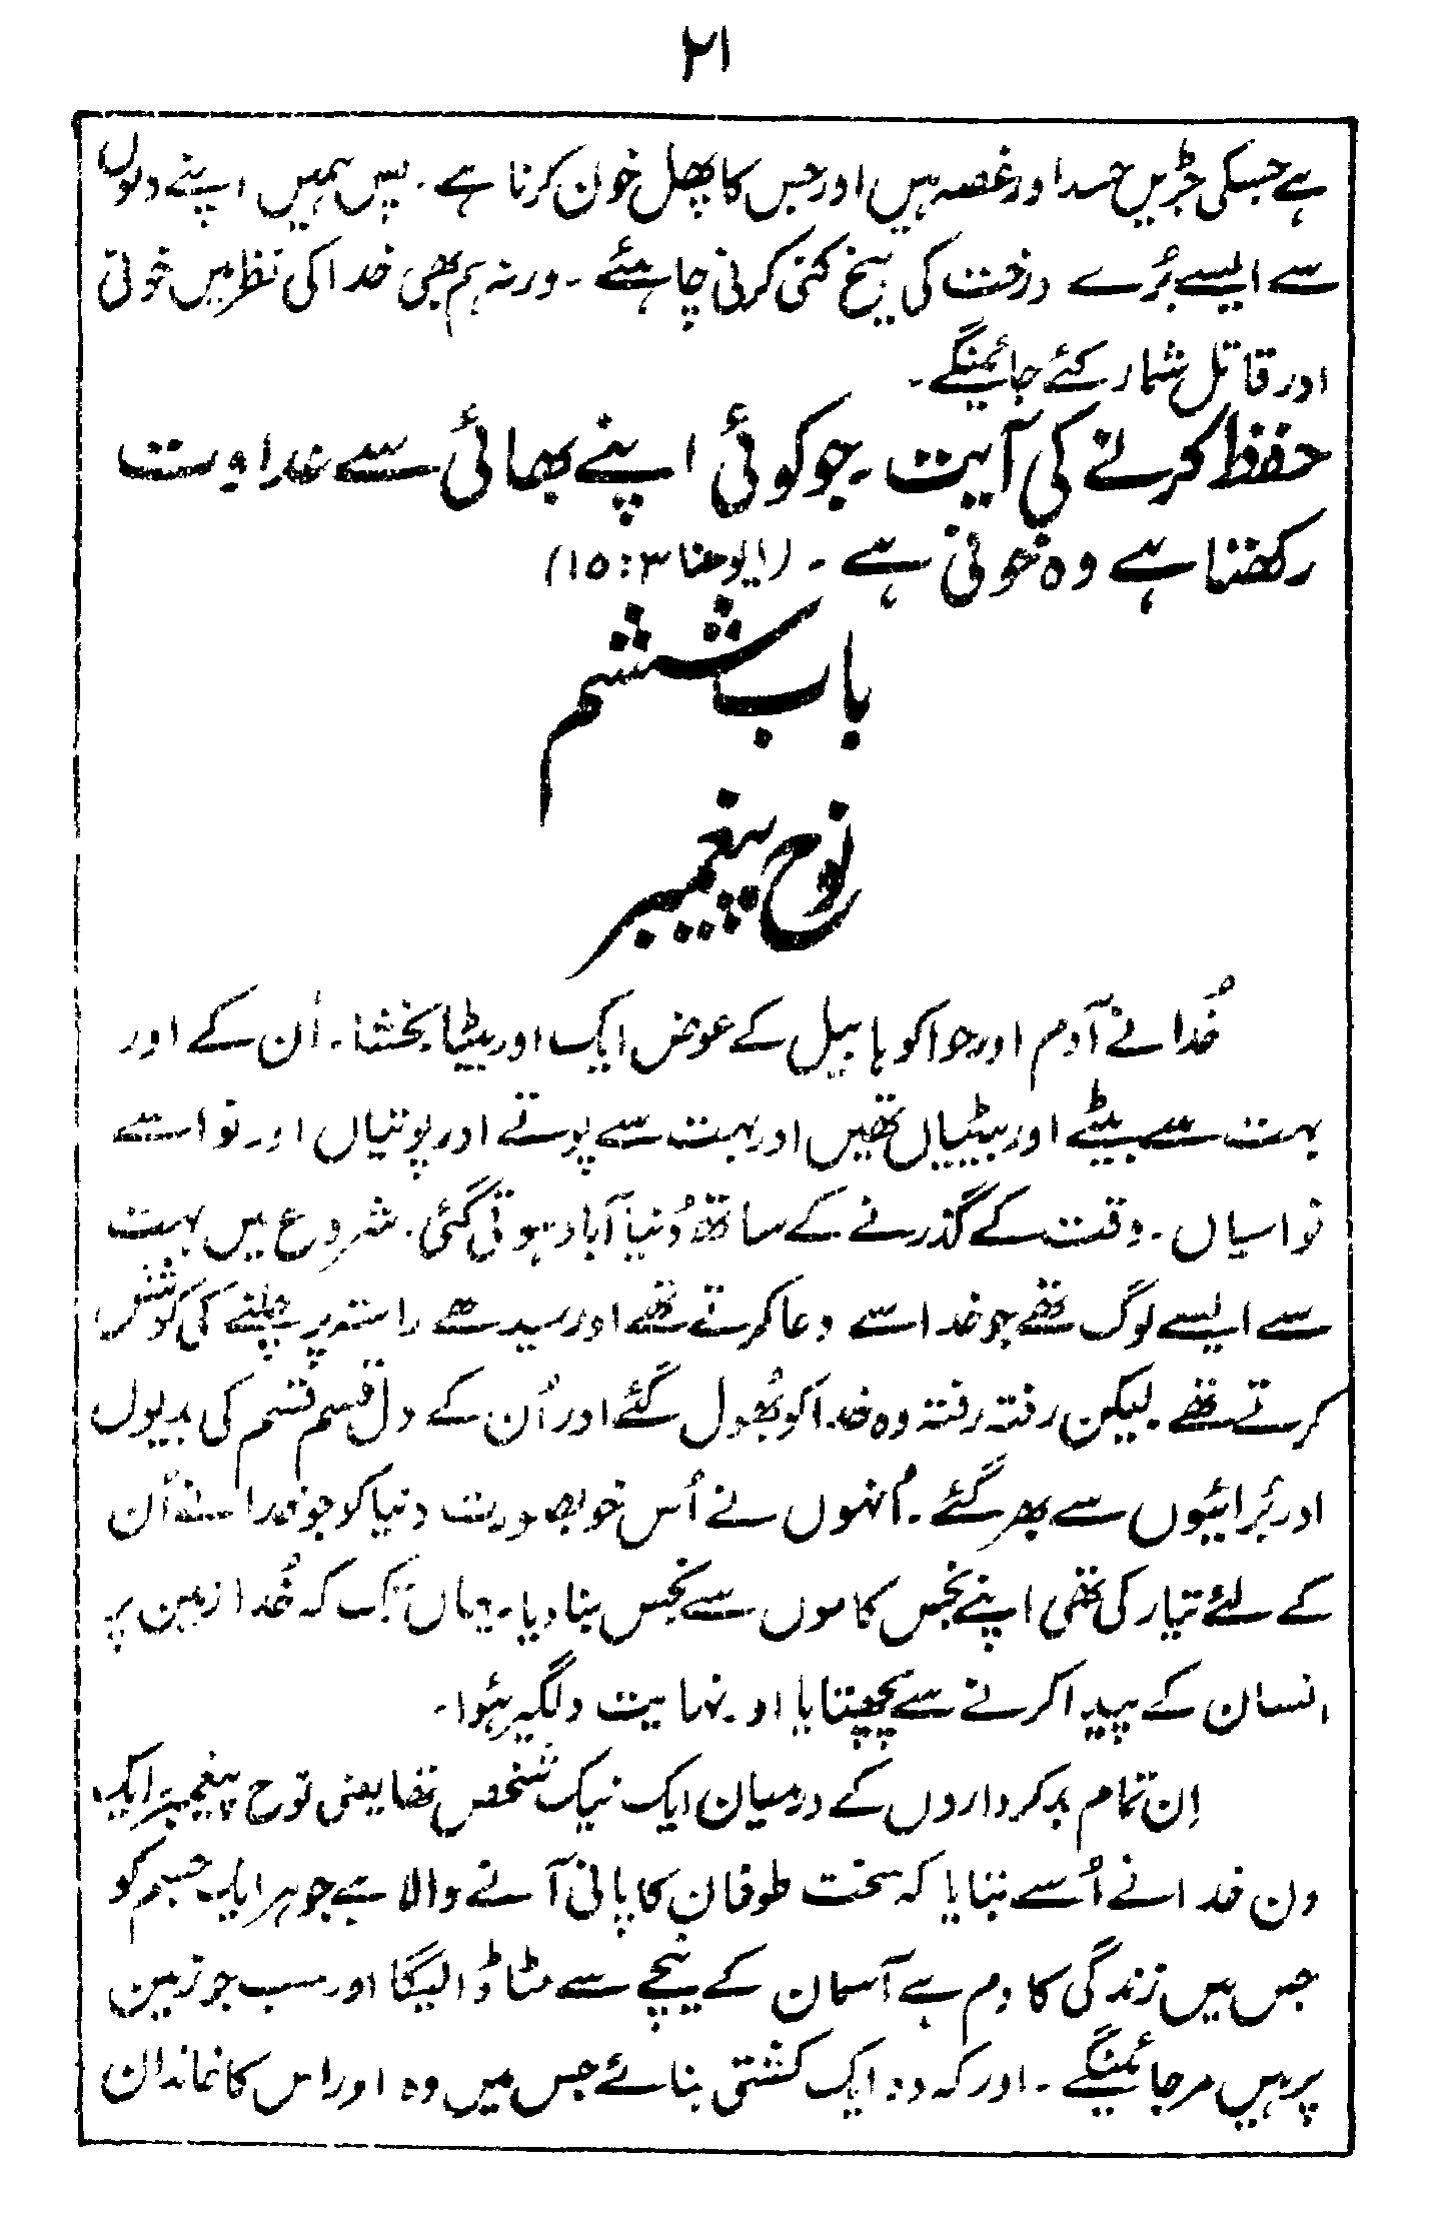 ۲۱
ہے جسکی جڑیں حسد اور غصہ ہیں اور جس کا پھل خون کرنا ہے۔ پس ہمیں اپنے دلوں
سے ایسے بُرے درخت کی بیخ کنی کرنی چاہئے۔ ورنہ ہم بھی خدا کی نظر میں خونی
اور قاتل شمار کئے جائینگے۔
حفظ کرنے کی آیت۔ جو کوئی اپنے بھائی سے عداوت
رکھتا ہے وہ خونی ہے۔ (ایوحنا ۳:۱۵)
باب ششم
نوح پیغمبر
خُدا نے آدم اور حوا کو ہابیل کے عوض ایک اور بیٹا بخشا۔ اُن کے اور
بہت سے بیٹے اور بیٹیاں تھیں اور بہت سے پوتے اور پوتیاں اور نواسے
نواسیاں۔ وقت کے گذرنے کے ساتھ دُنیا آباد ہوتی گئی۔ شروع میں بہت
سے ایسے لوگ تھے جو خدا سے دعا کرتے تھے اور سیدھے راستہ پر چلنے کی کوشش
کرتے تھے۔ لیکن رفتہ رفتہ وہ خدا کو بھُول گئے اور اُن کے دل قسم قسم کی بدیوں
اور بُرائیوں سے بھر گئے۔ اُنہوں نے اُس خوبصورت دنیا کو جو خدا نے اُن
کے لئے تیار کی تھی اپنے نجس کاموں سے نجس بنا دیا۔ یہاں تک کہ خُدا زمین پر
انسان کے پیدا کرنے سے پچھتایا اور نہایت دلگیر ہئوا۔
اِن تمام بدکرداروں کے درمیان ایک نیک شخص تھا یعنی نوح پیغمبر۔ ایک
دن خدا نے اُسے بتایا کہ سخت طوفان کا پانی آنے والا ہے جو ہر ایک جسم کو
جس میں زندگی کا دم ہے آسمان کے نیچے سے مٹا ڈالیگا اور سب جو زمین
پر ہیں مر جائینگے۔ اور کہ وہ ایک کشتی بنائے جس میں وہ اور اس کا خاندان